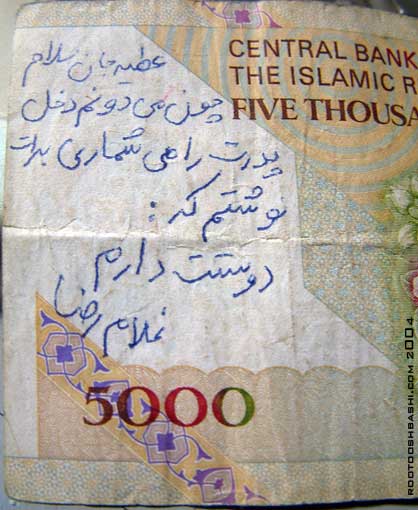 عطیه جان سلام
چون می دونم دخل
پدرت را می شماری برات
نوشتم که :
دوستت دارم
غلام رضا
CENTRAL BANK
THE ISLAMIC R
FIVE THOUSA
5000
ROOTOOSHBASHI.COM 2004